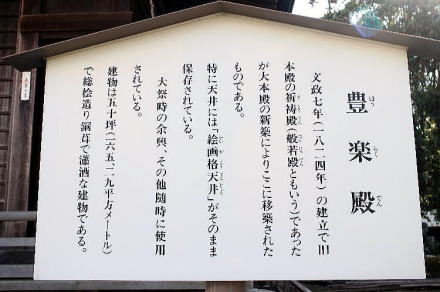 豊楽殿
文政七年(一八二四年)の建立で旧
本殿の祈祷殿(般若殿ともいう)であった
が大本殿の新築によりここに移築された
ものである。
特に天井には「絵画格天井」がそのまま
保存されている。
大祭時の余興、その他随時に使用
されている。
建物は五十坪(一六五、二九平方メートル)
で総桧造り銅葺で瀟洒な建物である。